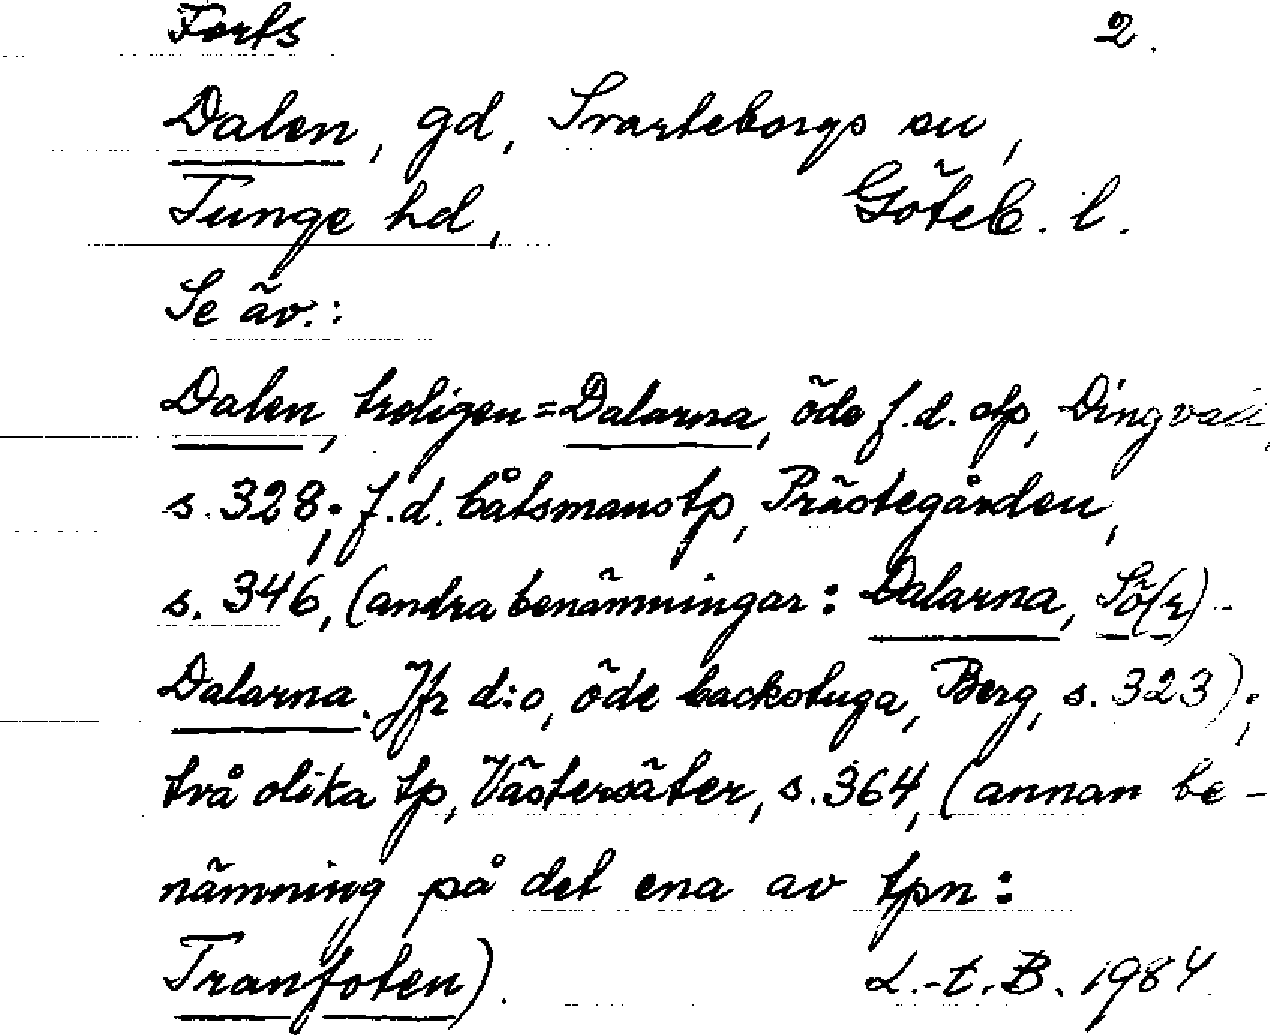 Forts 2.
Dalen, gd, Svarteborgs sn,
Tunge hd, Göteb. l.
Se äv.:
Dalen, troligen = Dalarna, öde f.d. stp, Dingvall,
s. 328; f.d. båtsmanstp, Prästegården,
s. 346, (andra benämningar: Dalarna, Sö(r)-
Dalarna. Jfr d:o, öde backstuga, Berg, s. 323);
två olika tp, Västersäter, s. 364, (annan be-
nämning på det ena av tpn:
Tranfoten). L.-t. B. 1984